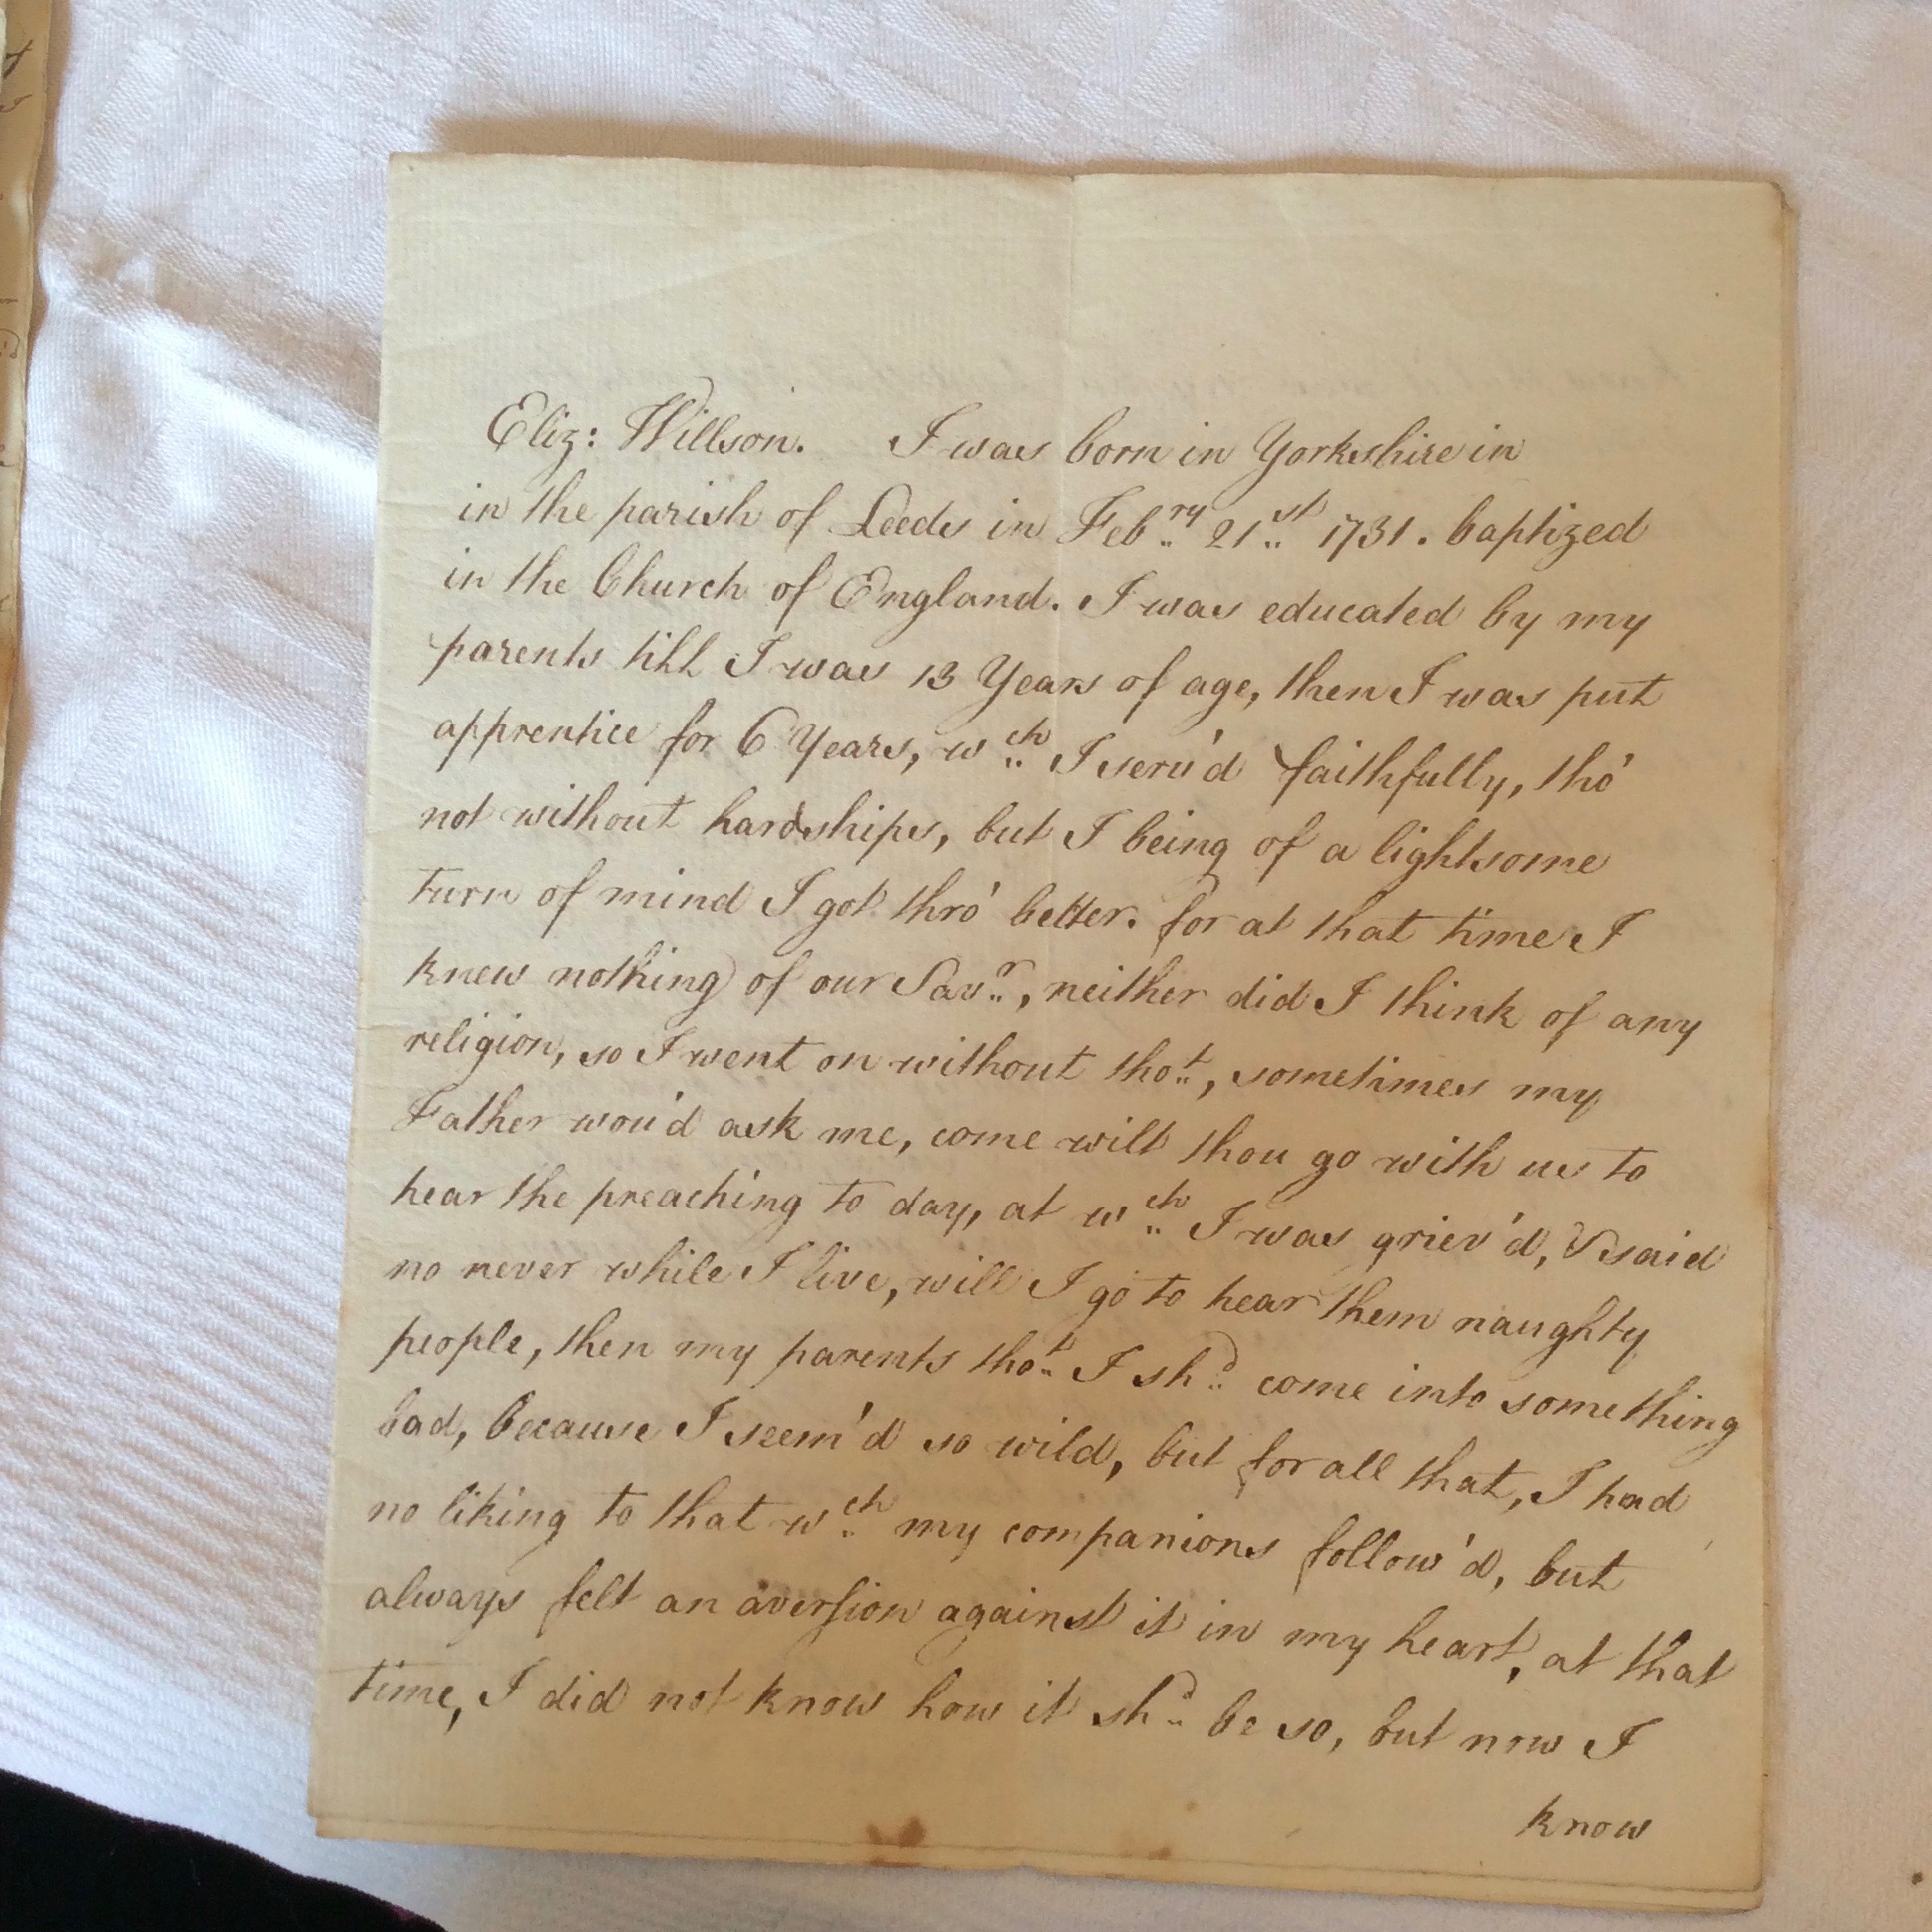 Eliz: Willson. I was born in Yorkshire in
in the parish of Leeds in Feb.ry 21.st 1731. baptized
in the Church of England. I was educated by my
parents till I was 13 Years of age, then I was put
apprentice for 6 Years, w.ch I serv'd faithfully, tho'
not without hardships, but I being of a lightsome
turn of mind I got thro' better. for at that time I
knew nothing of our Sav.r, neither did I think of any
religion, so I went on without tho.t, sometimes my
Father wou'd ask me, come wilt thou go with us to
hear the preaching to day, at w.ch I was griev'd, & said
no never while I live, will I go to hear them naughty
people, then my parents tho.t I sh.d come into something
bad, because I seem'd so wild, but for all that, I had
no liking to that w.ch my companions follow'd, but
always felt an aversion against it in my heart, at that
time, I did not know how it sh.d be so, but now I
know